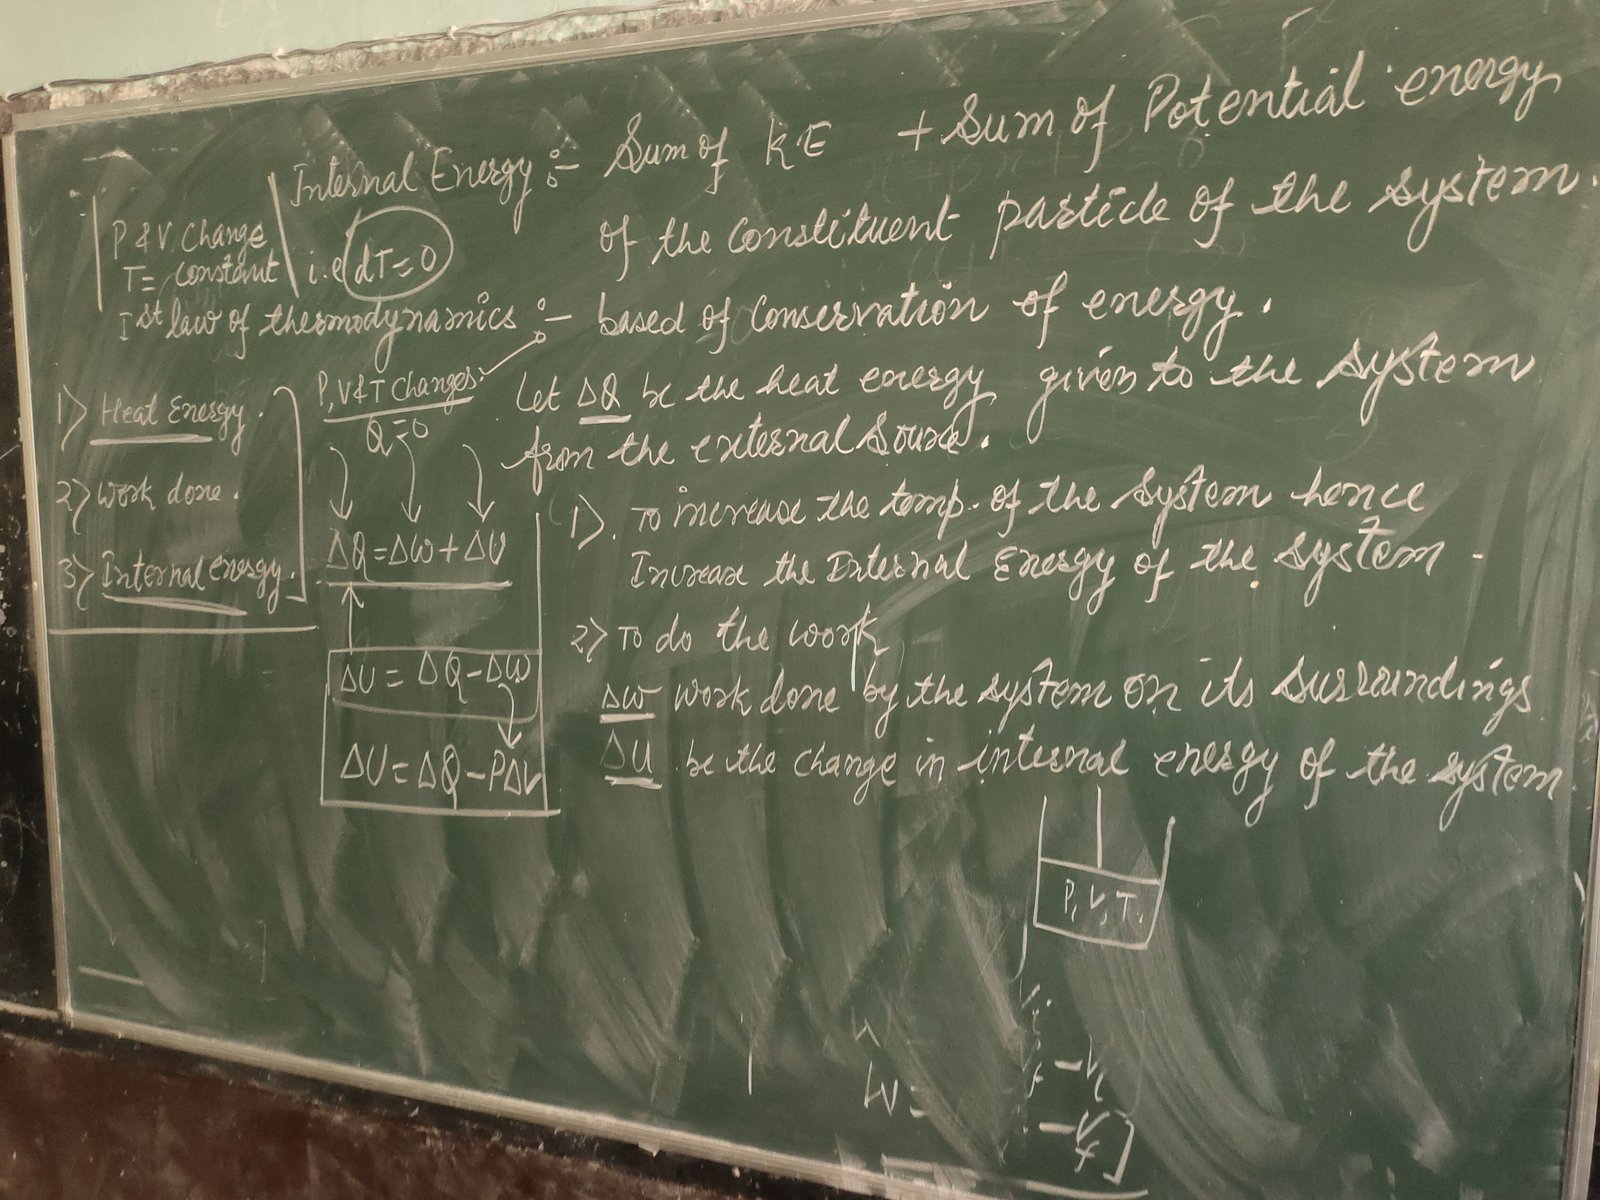 Internal Energy :- Sum of KE + Sum of Potential energy
of the constituent particle of the system.
P & V, Change
T = constant i.e dT = 0
Ist law of thermodynamics :- based of conservation of energy.
1) Heat Energy.
2) work done.
3) Internal energy.
P, V & T Changes.
Q = 0
ΔQ = ΔW + ΔU
ΔU = ΔQ - ΔW
ΔU = ΔQ - PΔV
Let ΔQ be the heat energy given to the system
from the external source.
1). To increase the temp. of the system hence
Increase the Internal Energy of the system.
2) To do the work
ΔW work done by the system on its surroundings
ΔU be the change in internal energy of the system.
P, V, T.
W =